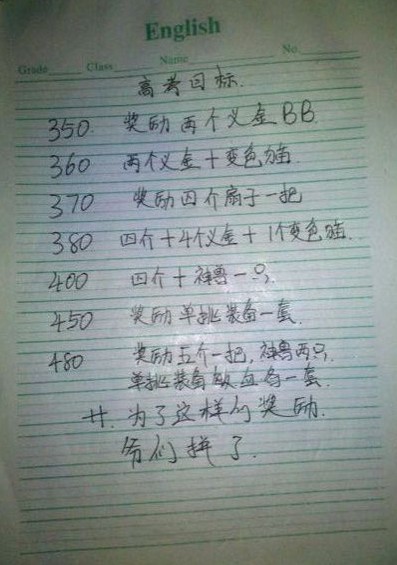 English
Grade Class Name No.
高考目标.
350. 奖励两个义金BB
360 两个义金+变色猫.
370 奖励四介扇子一把
380 四介+4个义金+1个变色猫.
400 四介+神兽一只.
450 奖励单挑装备一套.
480 奖励五介一把,神兽两只,
单挑装备血各一套.
廿.为了这样的奖励.
爷们拼了.